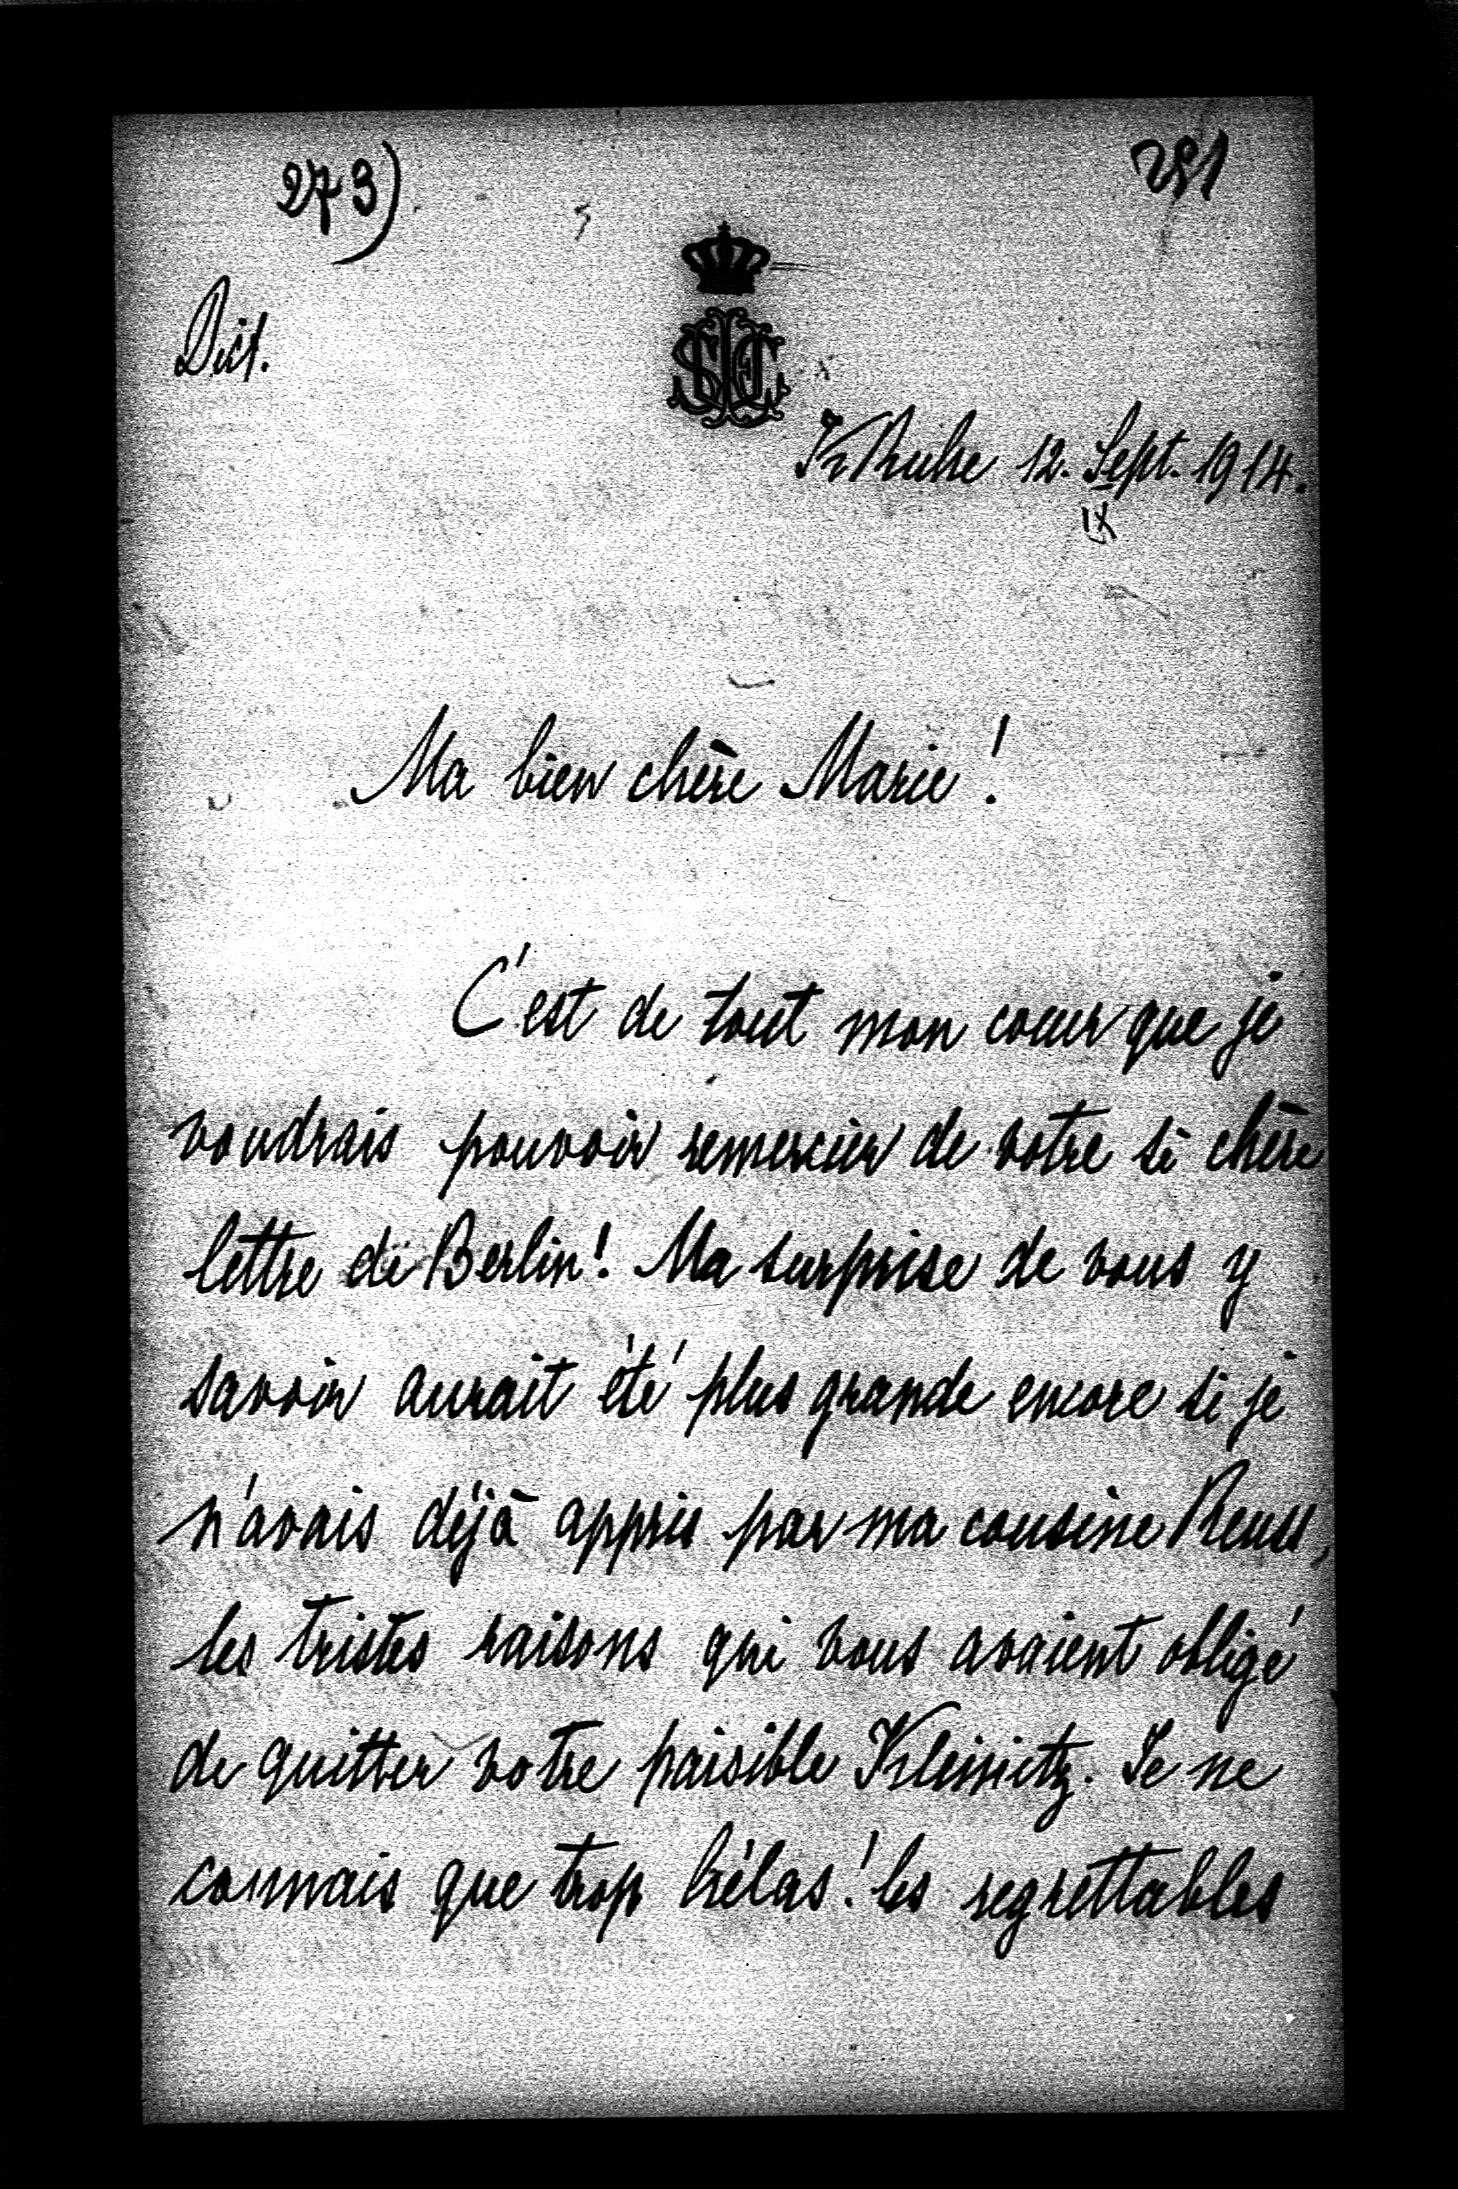 273)
Dict.
KRuhe 12. Sept. 1914.
IX
Ma bien chère Marie!
C'est de tout mon coeur que je
voudrais pouvoir remercier de votre si chère
lettre de Berlin! Ma surprise de vous y
savoir aurait été plus grande encore si je
n'avais déjà appris par ma cousine Reuss,
les tristes raisons qui vous avaient obligé
de quitter votre paisible. Je ne
connais que trop hélas! les regrettables